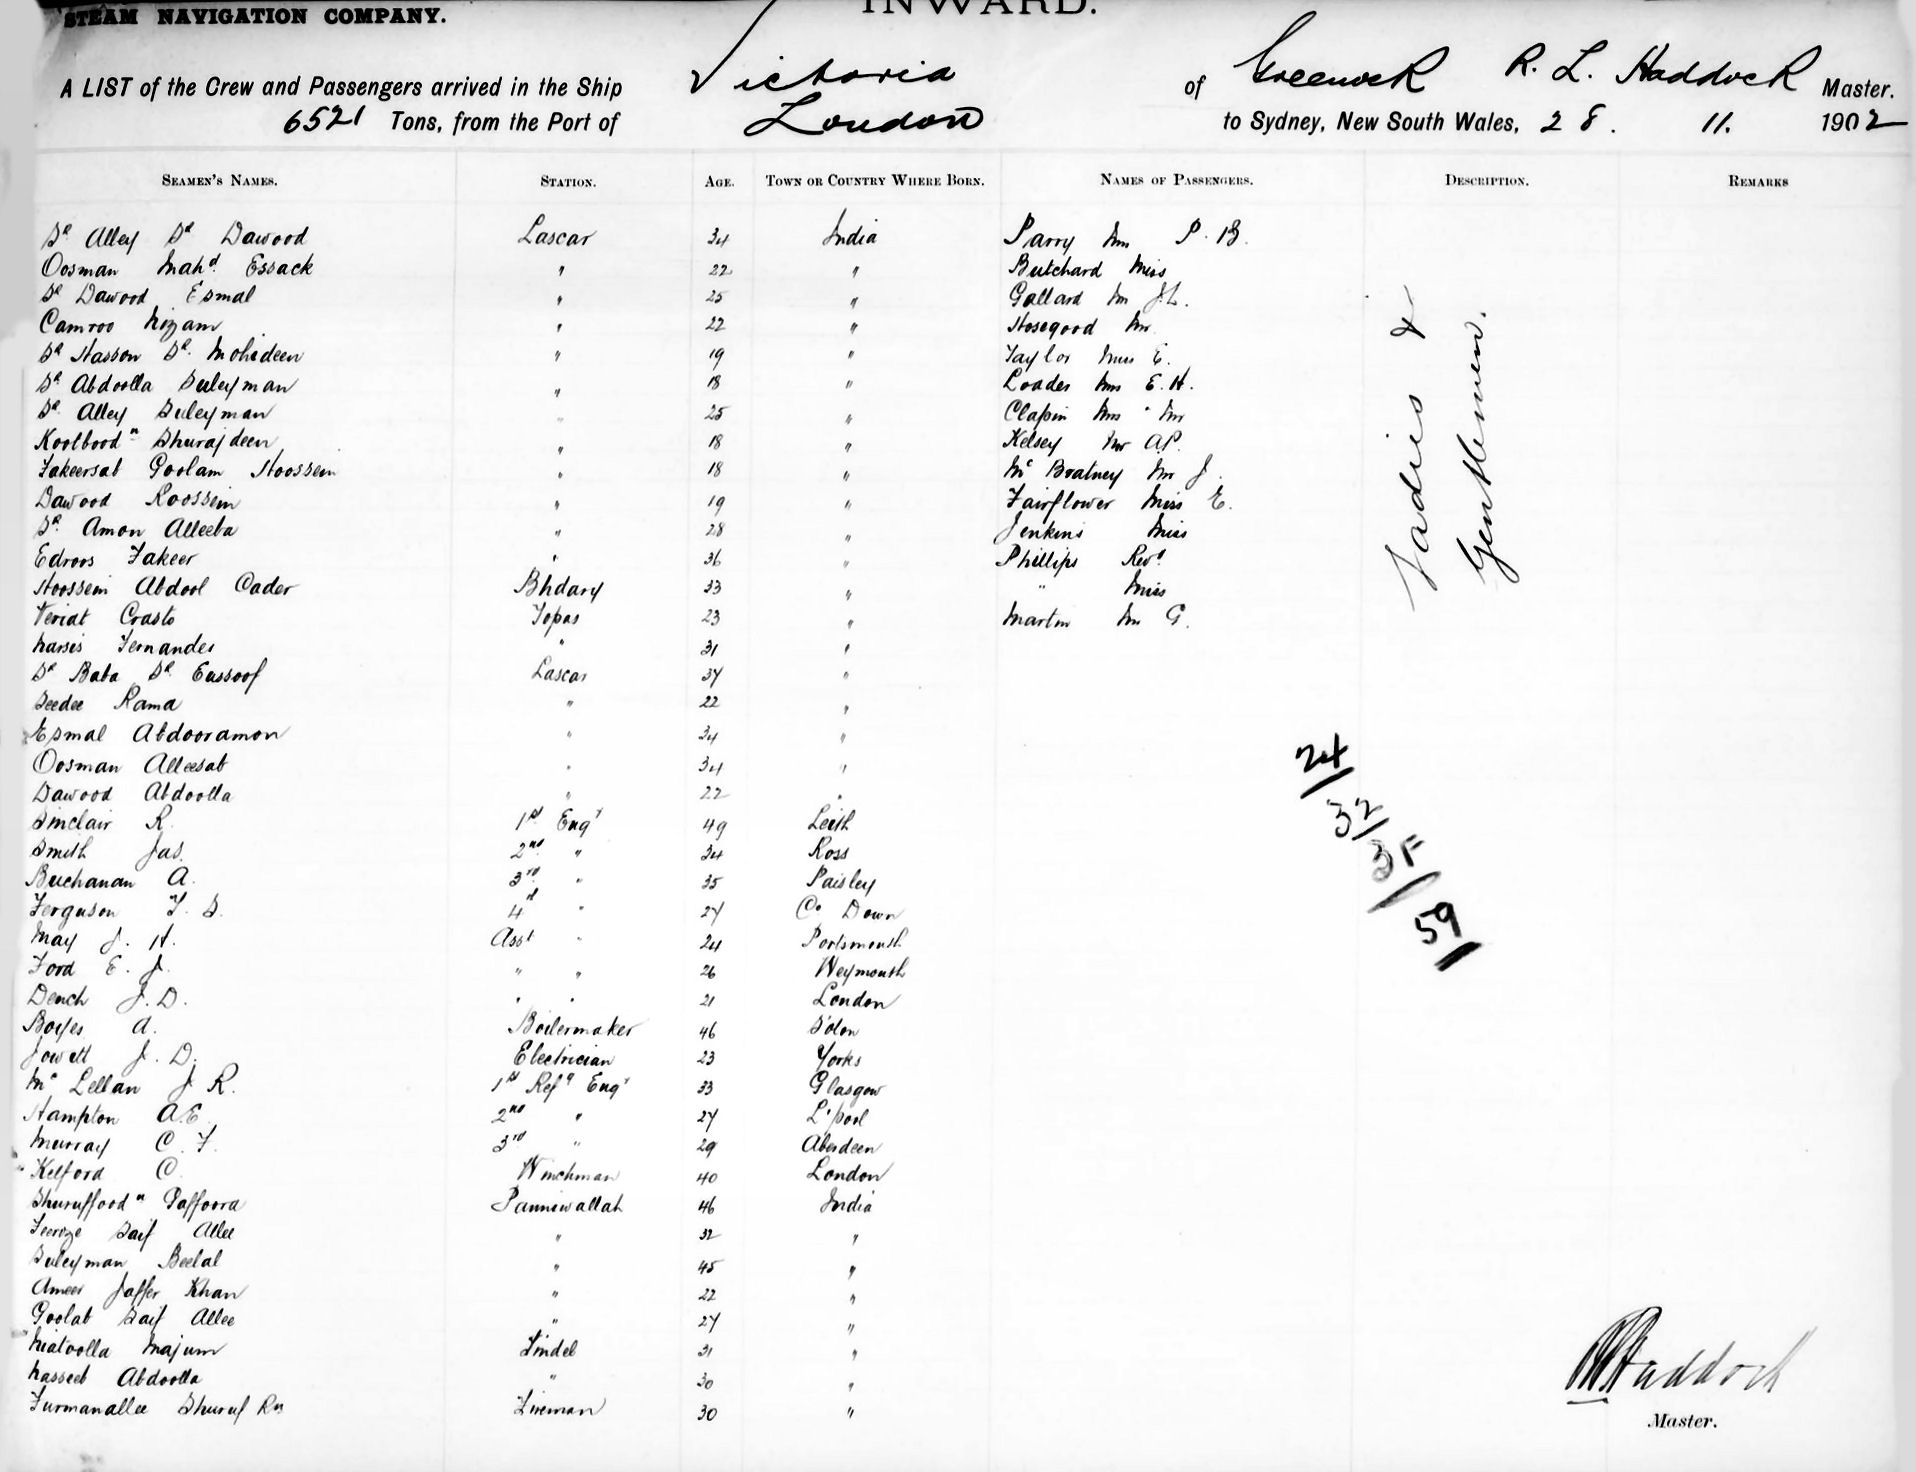 STEAM NAVIGATION COMPANY.
INWARD.
A LIST of the Crew and Passengers arrived in the Ship Victoria of Greenock R. L. Haddock Master.
6521 Tons, from the Port of London to Sydney, New South Wales, 28. 11. 1902
SEAMEN'S NAMES. STATION. AGE. TOWN OR COUNTRY WHERE BORN. NAMES OF PASSENGERS. DESCRIPTION. REMARKS
Sk Alley Sk Dawood Lascar 34 India Parry P. B.
Oosman Mahd. Essack " 22 " Butchard Miss
Sk Dawood Esmal " 25 " Gallard Mr J.L.
Camroo Nizam " 22 " Hosegood Mr
Sk Hasson Sk. Mohideen " 19 " Taylor Miss E.
Sk Abdoolla Suleyman " 18 " Loader E. H.
Sk. Alley Suleyman " 25 " Clapin Mrs " Mr
Kootbood" Shurajdeen " 18 " Kelsey Mr A.P.
Fakeersab Goolam Hoossein " 18 " Mc Bratney Mr J.
Dawood Hoossein " 19 " Fairflower Miss E.
Sk. Amon Alleeba " 28 " Jenkins Miss
Edroos Fakeer " 36 " Phillips Revd
Hoossein Abdool Cader Bhdary 33 " " Miss
Veriat Crasto Topas 23 " Martin Mr G.
Narsis Fernandes " 31 "
Sk Baba Sk. Eussoof Lascar 37 "
Seedee Rama " 22 "
Esmal Abdooramon " 34 "
Oosman Alleesab " 34 "
Dawood Abdoolla " 22 "
Sinclair R. 1st Engr 49 Leith
Smith Jas. 2nd " 34 Ross
Buchanan A. 3rd " 35 Paisley
Ferguson T. S. 4th " 27 Co Down
May J. H. Asst " 24 Portsmouth
Ford E. J. " " 26 Weymouth
Dench J. D. " " 21 London
Boyes A. Boilermaker 46 S'ton
Jowett J. D. Electrician 23 Yorks
Mc Lellan J R. 1st Refg Engr 33 Glasgow
Hampton A.E. 2nd " 27 L'pool
Murray C. F. 3rd " 29 Aberdeen
Kelford C. Winchman 40 London
Shuruffood" Gaffoora Panniwallah 46 India
Feeroze Saif Allee " 32 "
Suleyman Beelal " 45 "
Ameer Jaffer Khan " 22 "
Goolab Saif Allee " 27 "
Niatoolla Majum Tindel 31 "
Nasseeb Abdoolla " 30 "
Furmanallee Shuruf Fireman 30 "
Ladies &
Gentlemen.
24
32
35
59
R L Haddock
Master.